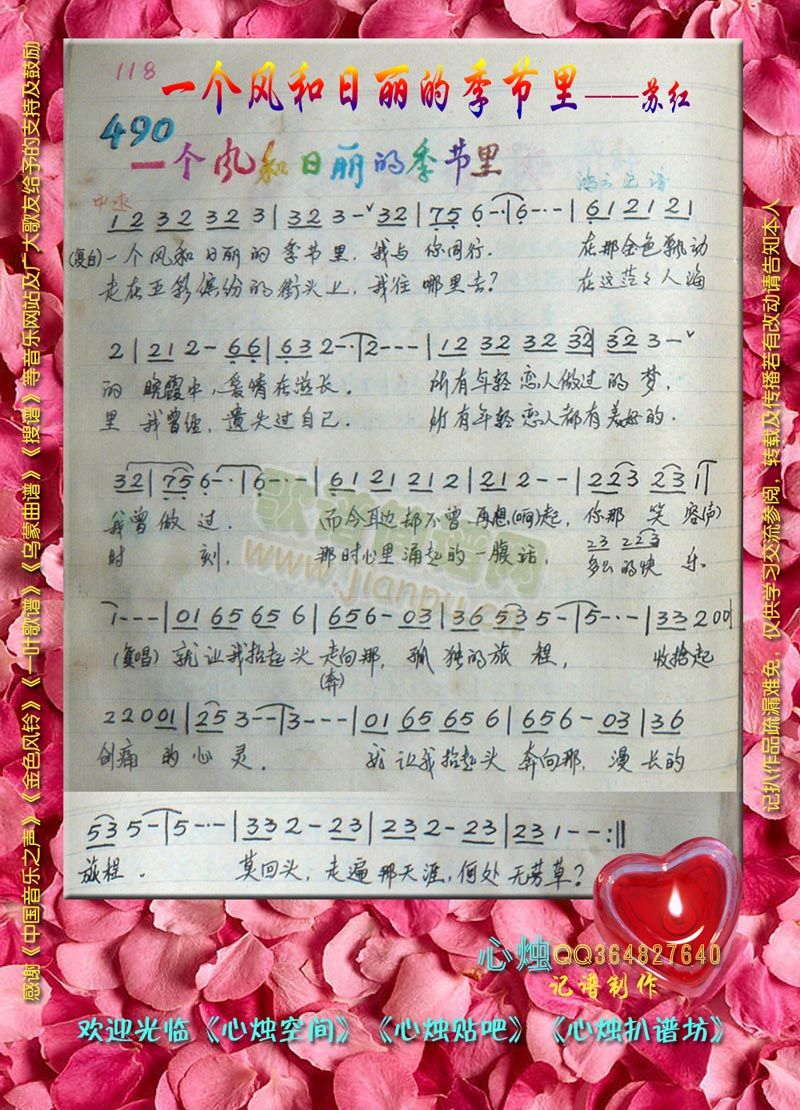 118
一个风和日丽的季节里——苏红
490
一个风和日丽的季节里
中速
1 2 3 2 3 2 3 | 3 2 3 -ˇ 3 2 | 7 5 6 - · | 6 - · - - | 6 1 2 1 2 1
(复白)一个风和日丽的季节里,我与你同行. 在那金色飘动
走在五彩缤纷的街头上,我往哪里去? 在这茫々人海
2 | 2 1 2 - 6 6 | 6 3 2 - · | 2 - - - | 1 2 3 2 3 2 3 2 | 3 2 3 -ˇ
的晚霞中,爱情在滋长. 所有年轻恋人做过的梦,
里我曾经,遗失过自己. 所有年轻恋人都有美好的.
3 2 | 7 5 6 - · | 6 - · - - | 6 1 2 1 2 1 2 | 2 1 2 - - | 2 2 3 2 3 1 |
我曾做过. 而今耳边却不曾再想(响)起,你那笑容(声)
2 3 2 2 3
时刻, 那时心里涌起的一腹话, 多么的快乐.
1 - - - | 0 1 6 5 6 5 6 | 6 5 6 - 0 3 | 3 6 5 3 5 - | 5 - · - - | 3 3 2 0 0 1
(复唱)就让我抬起头走向那,孤独的旅程, 收拾起
(奔)
2 2 0 0 1 | 2 5 3 - - | 3 - - - | 0 1 6 5 6 5 6 | 6 5 6 - 0 3 | 3 6
创痛的心灵. 就让我抬起头奔向那,漫长的
5 3 5 - | 5 - · - - | 3 3 2 - 2 3 | 2 3 2 - 2 3 | 2 3 1 - - :‖
旅程. 莫回头,走遍那天涯,何处无芳草?
歌谱简谱网
www.jianpu.cn
心烛QQ364827640
记谱制作
欢迎光临《心烛空间》《心烛贴吧》《心烛扒谱坊》
感谢《中国音乐之声》《金色风铃》《一叶歌谱》《乌蒙曲谱》《搜谱》等音乐网站及广大歌友给予的支持及鼓励
记扒作品疏漏难免,仅供学习交流参阅,转载及传播若有改动请告知本人